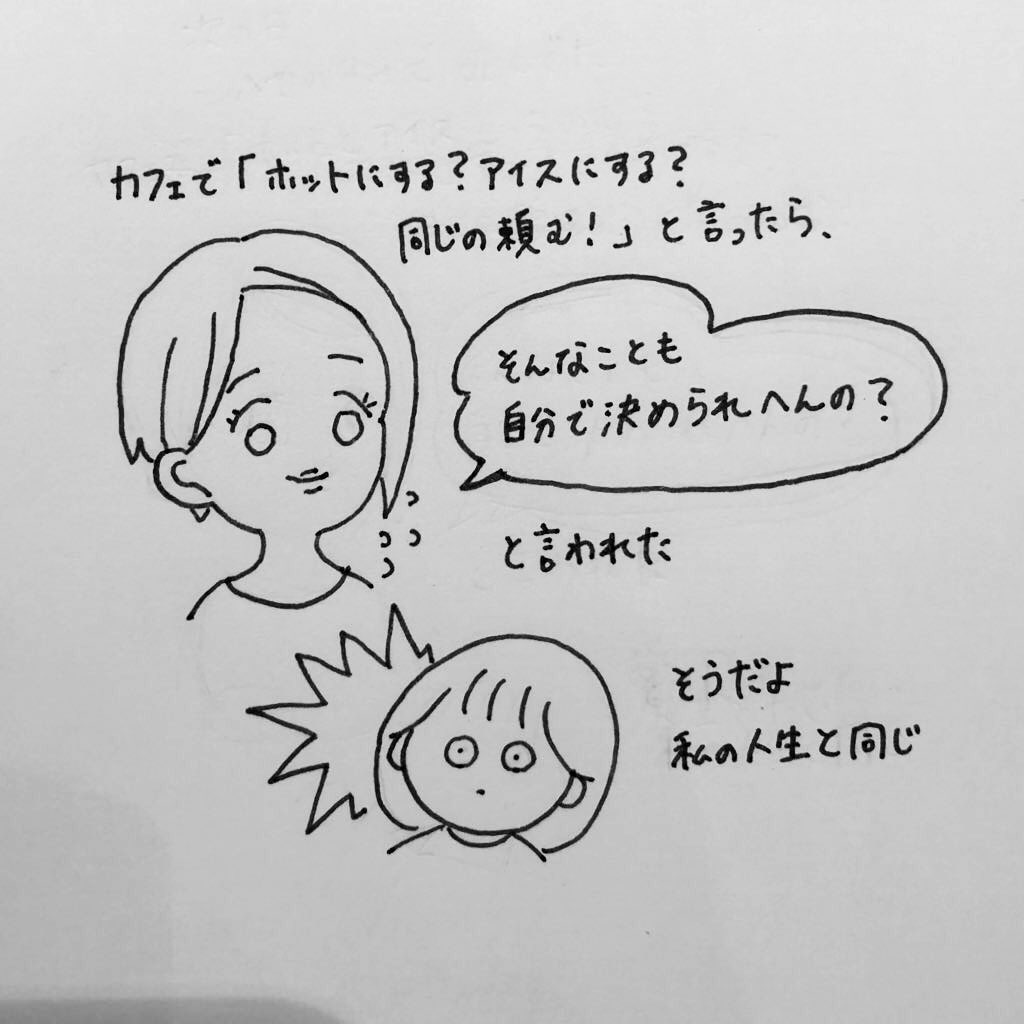 カフェで「ホットにする？アイスにする？
同じの頼む！」と言ったら、
そんなことも
自分で決められへんの？
と言われた
そうだよ
私の人生と同じ